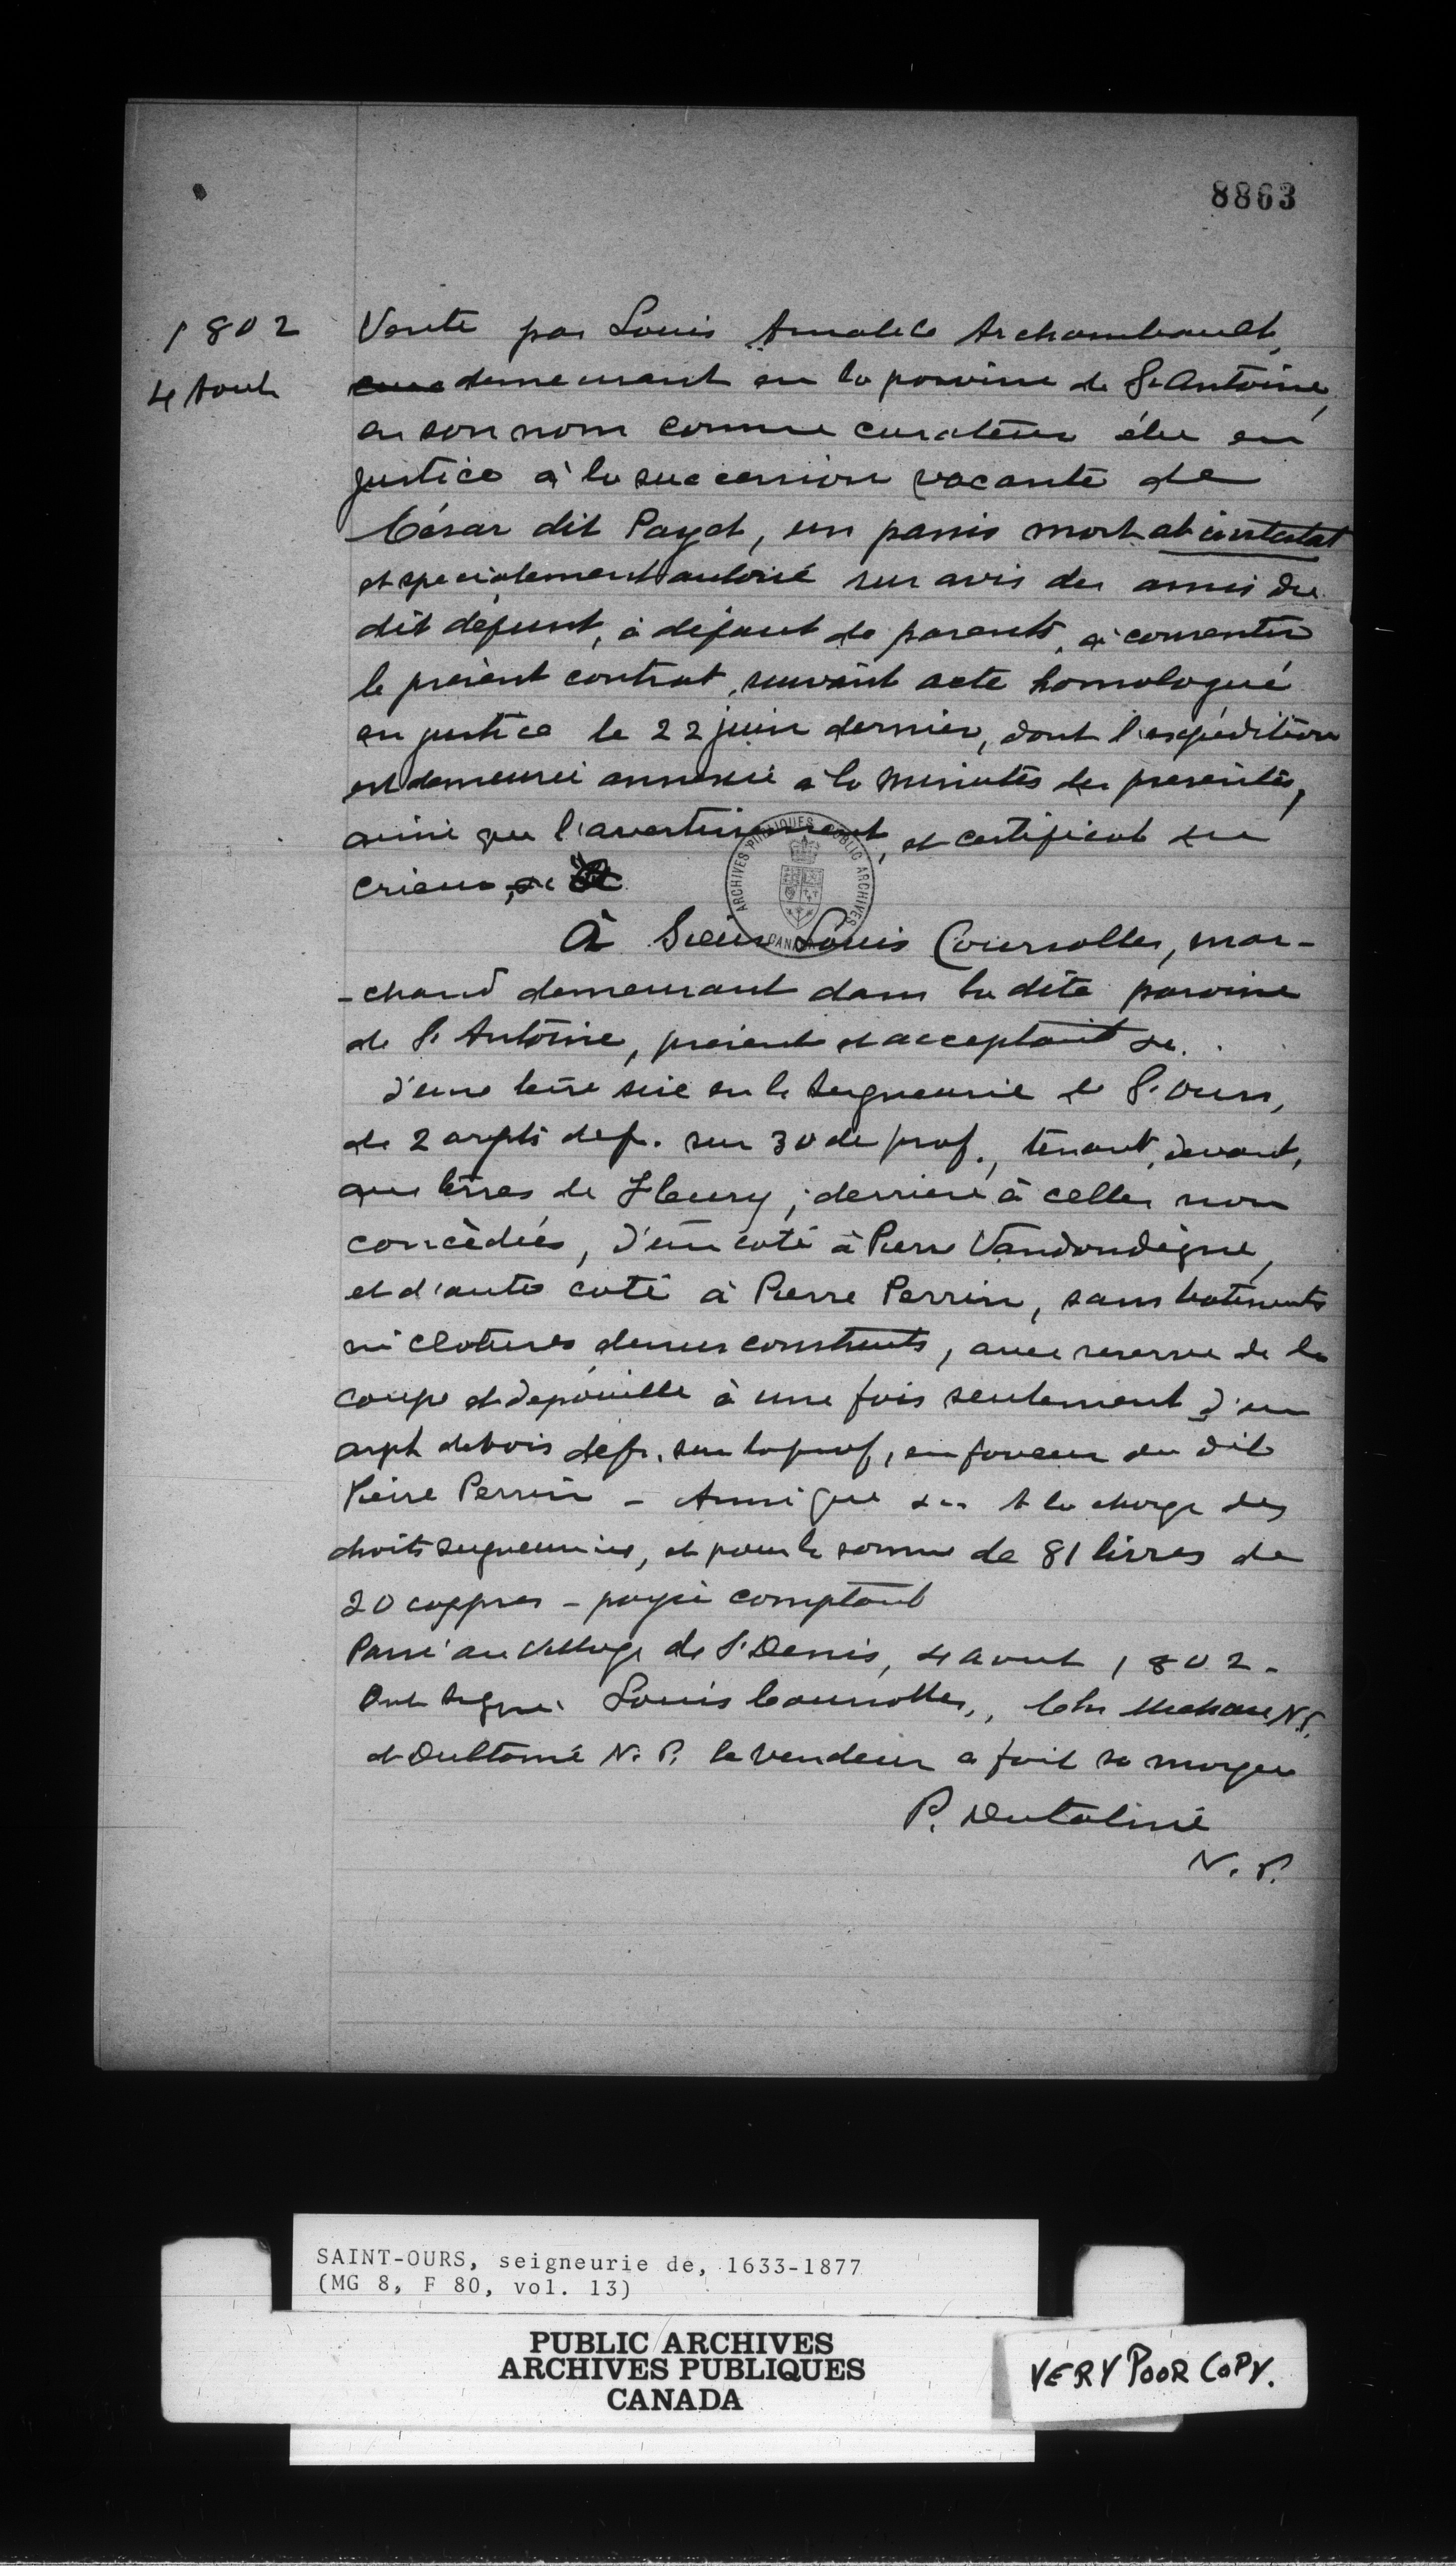 8863
1802
4 Aout
Vente par Louis Amable Archambault,
demeurant en la paroisse de St Antoine,
en son nom comme curateur élu en
justice à la succession vacante de
César dit Payet, un panis mort ab intestat
et specialement autorisé sur avis des amis du
dit défunt, à défaut de parents, à consentir
le présent contrat, suivant acte homologué
en justice le 22 juin dernier, dont l'expédition
est demeurée annexée à la minutes des presentes,
ainsi que l'avertissement, et certificat du
crieur, &c
À Sieur Louis Cournolles, mar-
-chand demeurant dans la dite paroisse
de St Antoine, présent et acceptant &c.
d'une terre sise en la seigneurie de St Ours,
de 2 arpts de fr. sur 30 de prof., tenant, devant,
aux terres de Fleury; derriere à celles non
concédées, d'un coté à Pierre Vandondègne,
et d'autre coté à Pierre Perrin, sans batiments
ni clotures dessus construits, avec reserve de la
coupe et dépouille à une fois seulement d'un
arpt de bois de fr. sur la prof, en faveur du dit
Pierre Perrin - Ainsi que &c. A la charge des
droits seigneuriaux, et pour la somme de 81 livres de
20 coppres - payée comptant
Passé au village de St Denis, 4 aout 1802.
Ont signé Louis Cournolles,, Chs Michaud N.P.
et Dutalmé N. P. le vendeur a fait sa marque
P. Dutalmé
N. P.
ARCHIVES PUBLIQUES PUBLIC ARCHIVES
CANADA
SAINT-OURS, seigneurie de, 1633-1877
(MG 8, F 80, vol. 13)
PUBLIC ARCHIVES
ARCHIVES PUBLIQUES
CANADA
VERY POOR COPY.